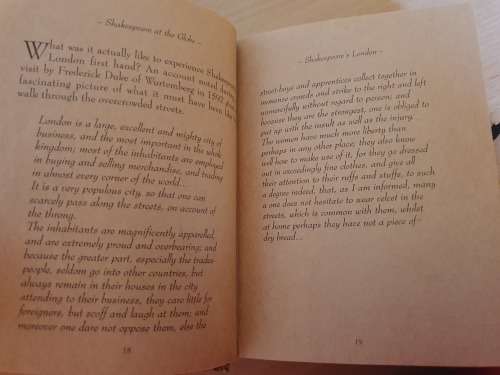 ~ Shakespeare at the Globe ~
What was it actually like to experience
London first hand? An account
visit by Frederick Duke of Wurtemberg in 1592
fascinating picture of what it must have been like
walk through the overcrowded streets.
London is a large, excellent and mighty city of
business, and the most important in the whole
kingdom; most of the inhabitants are employed
in buying and selling merchandise, and trading
in almost every corner of the world...
It is a very populous city, so that one can
scarcely pass along the streets, on account of
the throng.
The inhabitants are magnificently apparelled,
and are extremely proud and overbearing; and
because the greater part, especially the trades-
people, seldom go into other countries, but
always remain in their houses in the city
attending to their business, they care little for
foreigners, but scoff and laugh at them; and
moreover one dare not oppose them, else the
18
~ Shakespeare's London ~
street-boys and apprentices collect together in
immense crowds and strike to the right and left
unmercifully without regard to person; and
because they are the strongest, one is obliged to
put up with the insult as well as the injury...
The women have much more liberty than
perhaps in any other place; they also know
well how to make use of it, for they go dressed
out in exceedingly fine clothes, and give all
their attention to their ruffs and stuffs, to such
a degree indeed, that, as I am informed, many
a one does not hesitate to wear velvet in the
streets, which is common with them, whilst
at home perhaps they have not a piece of
dry bread...
19